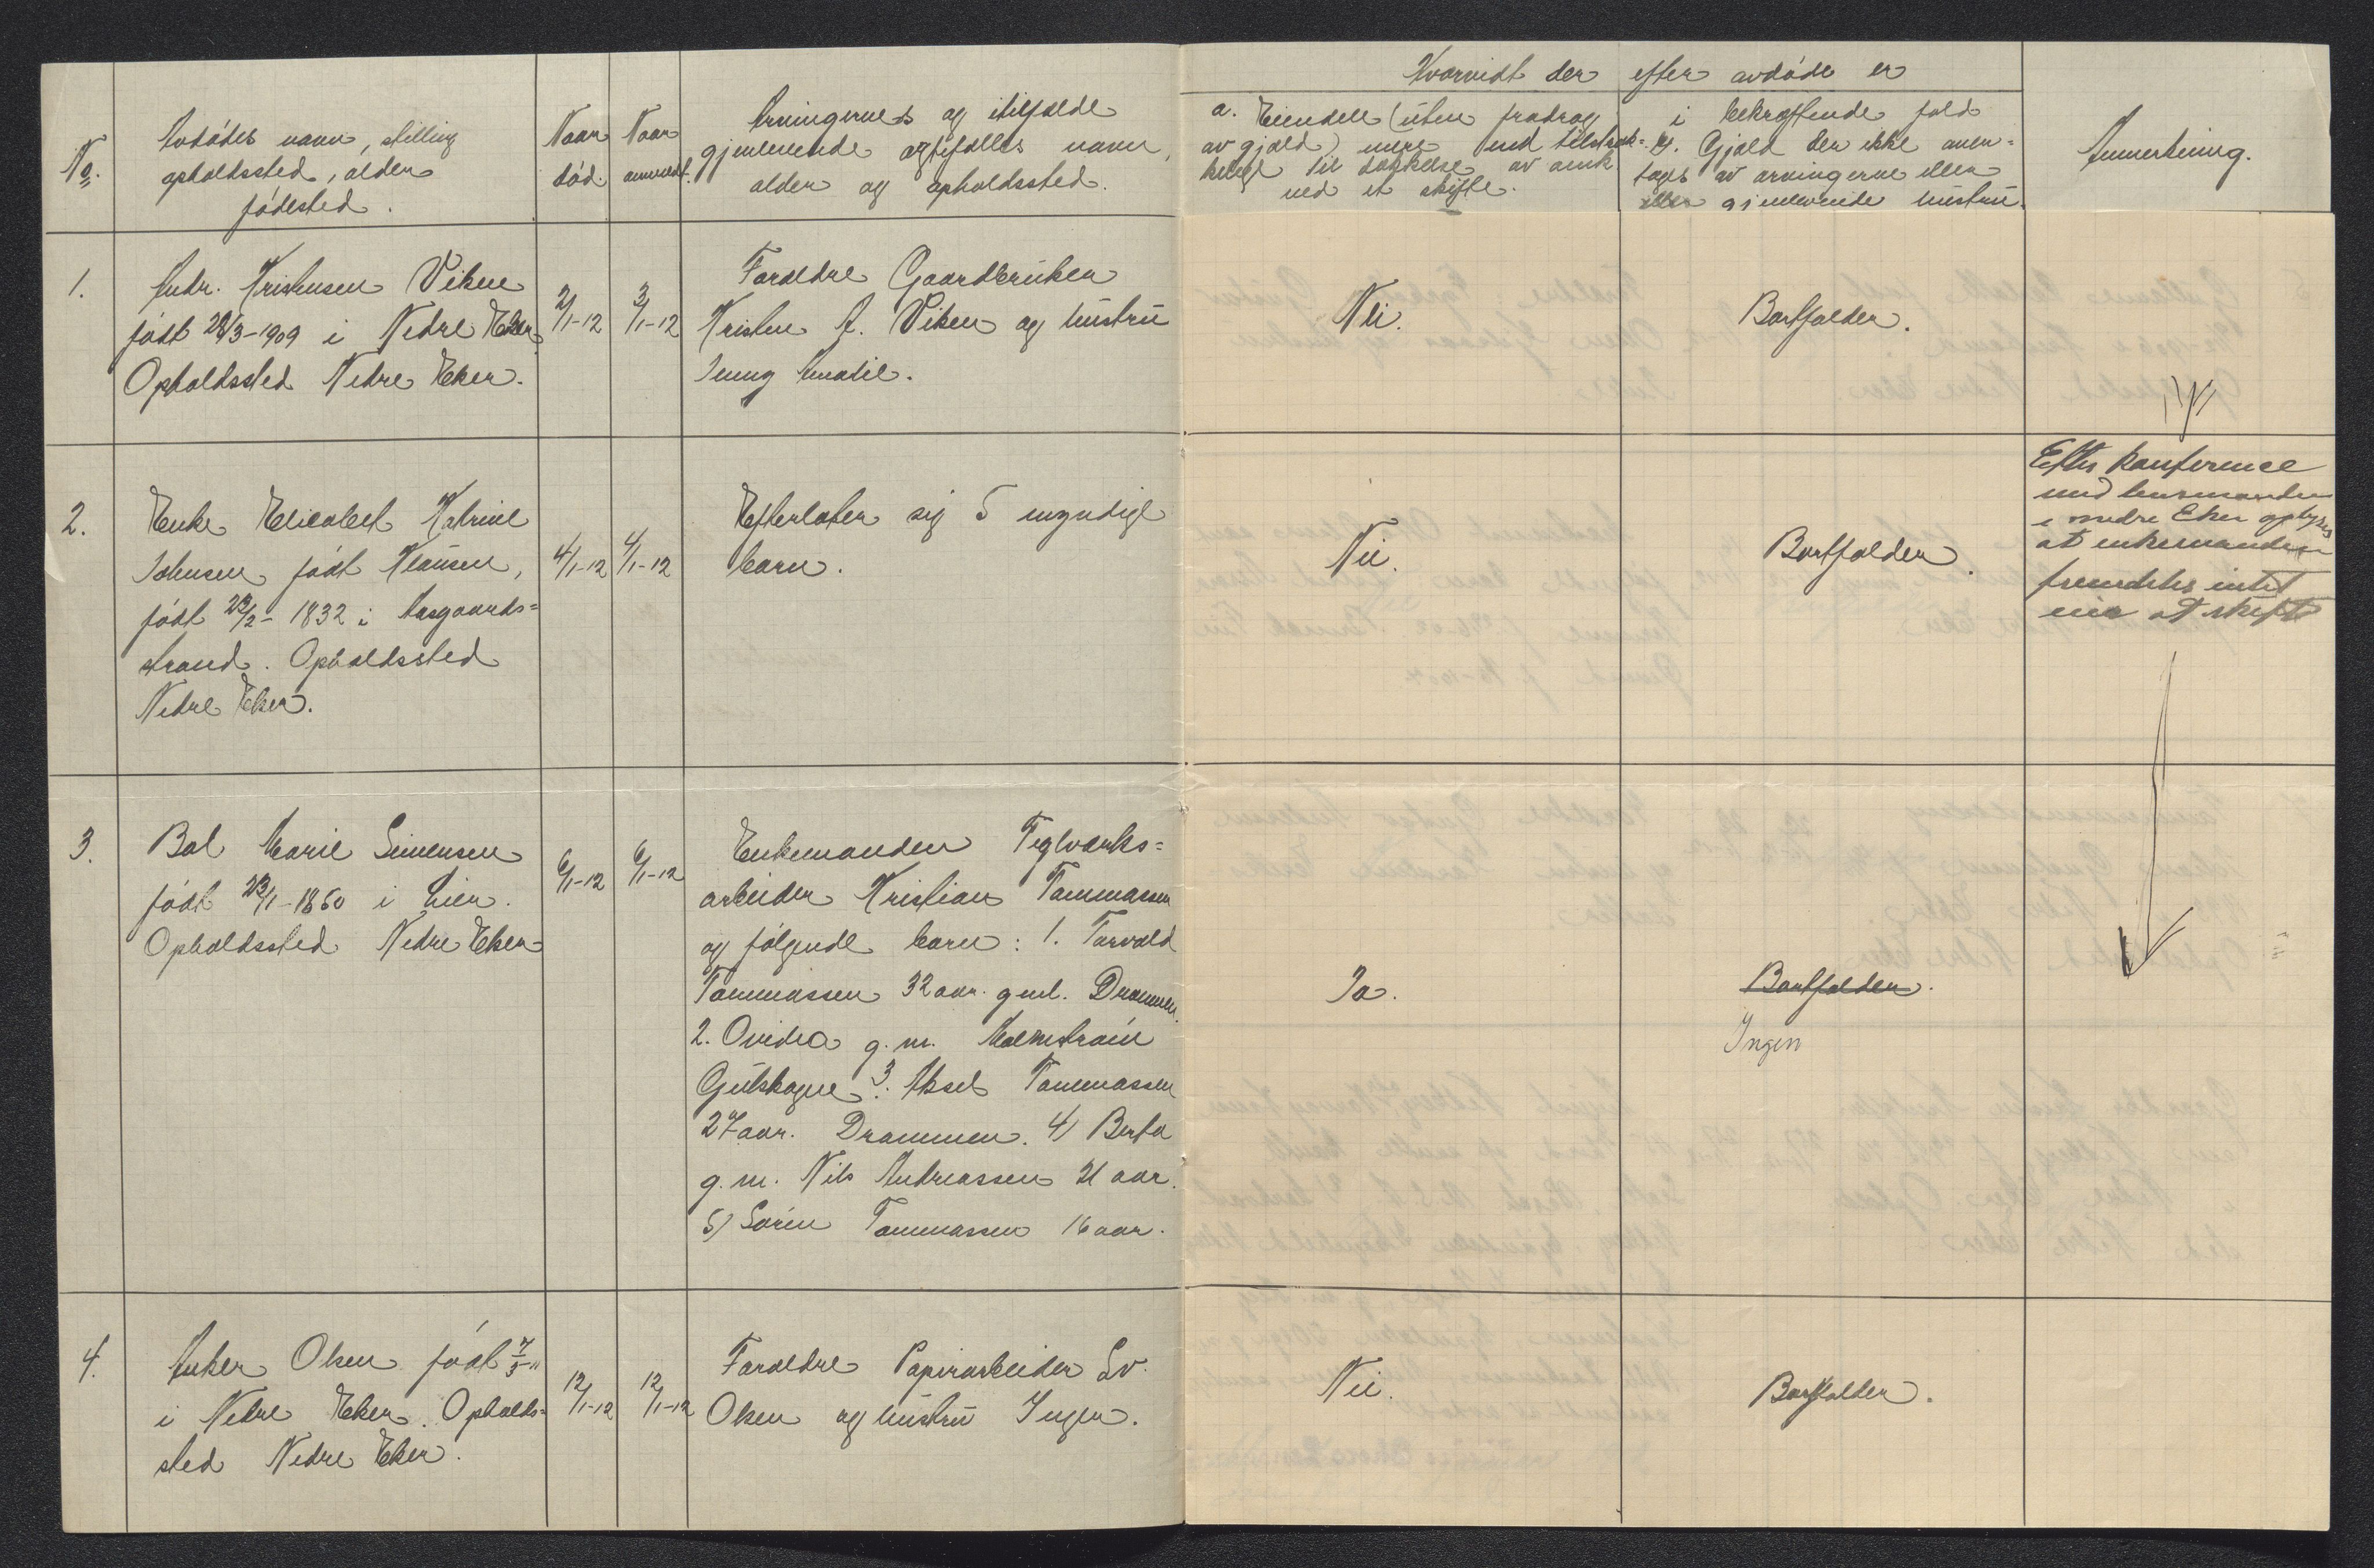 Hvorvidt der efter avdøde er
No.
Avdødes navn, stilling
opholdssted, alder
fødested.
Naar
død.
Naar
anmeldt.
Arvingernes og itilfælde
gjenlevende ægtefælles navn,
alder og opholdssted.
a. Eiendele (uten fradrag
av gjæld) mere end tilstræk=
keligt til dækkelse av omk.
ved et skifte.
i bekræftende fald
b. Gjæld der ikke over=
tages av arvingerne eller
eller gjenlevende hustru.
Anmerkning.
1.
Andr. Kristensen Viken
født 28/3-1909 i Nedre Eker.
Opholdssted Nedre Eker.
2/1-12
3/1-12
Forældre Gaardbruker
Kristen A. Viken og hustru
Jenny Amalie.
Nei.
Bortfalder.
2.
Enke Elisabet Katrine
Johnsen født Klausen,
født 23/2-1832 i Aasgaards=
strand. Opholdssted
Nedre Eker.
4/1-12
4/1-12
Efterlater sig 5 myndige
barn.
Nei.
Bortfalder.
Efter konference
med lensmanden
i nedre Eker oplyses
at enkemanden
fremdeles intet
eier at skifte
3.
Bol Marie Simensen
født 23/1-1860 i Lier.
Opholdssted Nedre Eker
6/1-12
6/1-12
Enkemanden Teglverks=
arbeider Kristian Tommassen
og følgende barn: 1. Torvald
Tommassen 32 aar. gml. Drammen.
2. Ovidia g. m. Malmstrøm
Gulskogen. 3. Aksel Tommassen
27 aar. Drammen. 4) Berta
g. m. Nils Andreassen 21 aar.
5) Sørin Tommassen 16 aar.
Ja.
Bortfalder.
Ingen
4.
Anker Olsen født 7/5-11
i Nedre Eker. Opholds=
sted Nedre Eker.
12/1-12
12/1-12
Forældre Papirarbeider Sv.
Olsen og hustru Inger.
Nei.
Bortfalder.